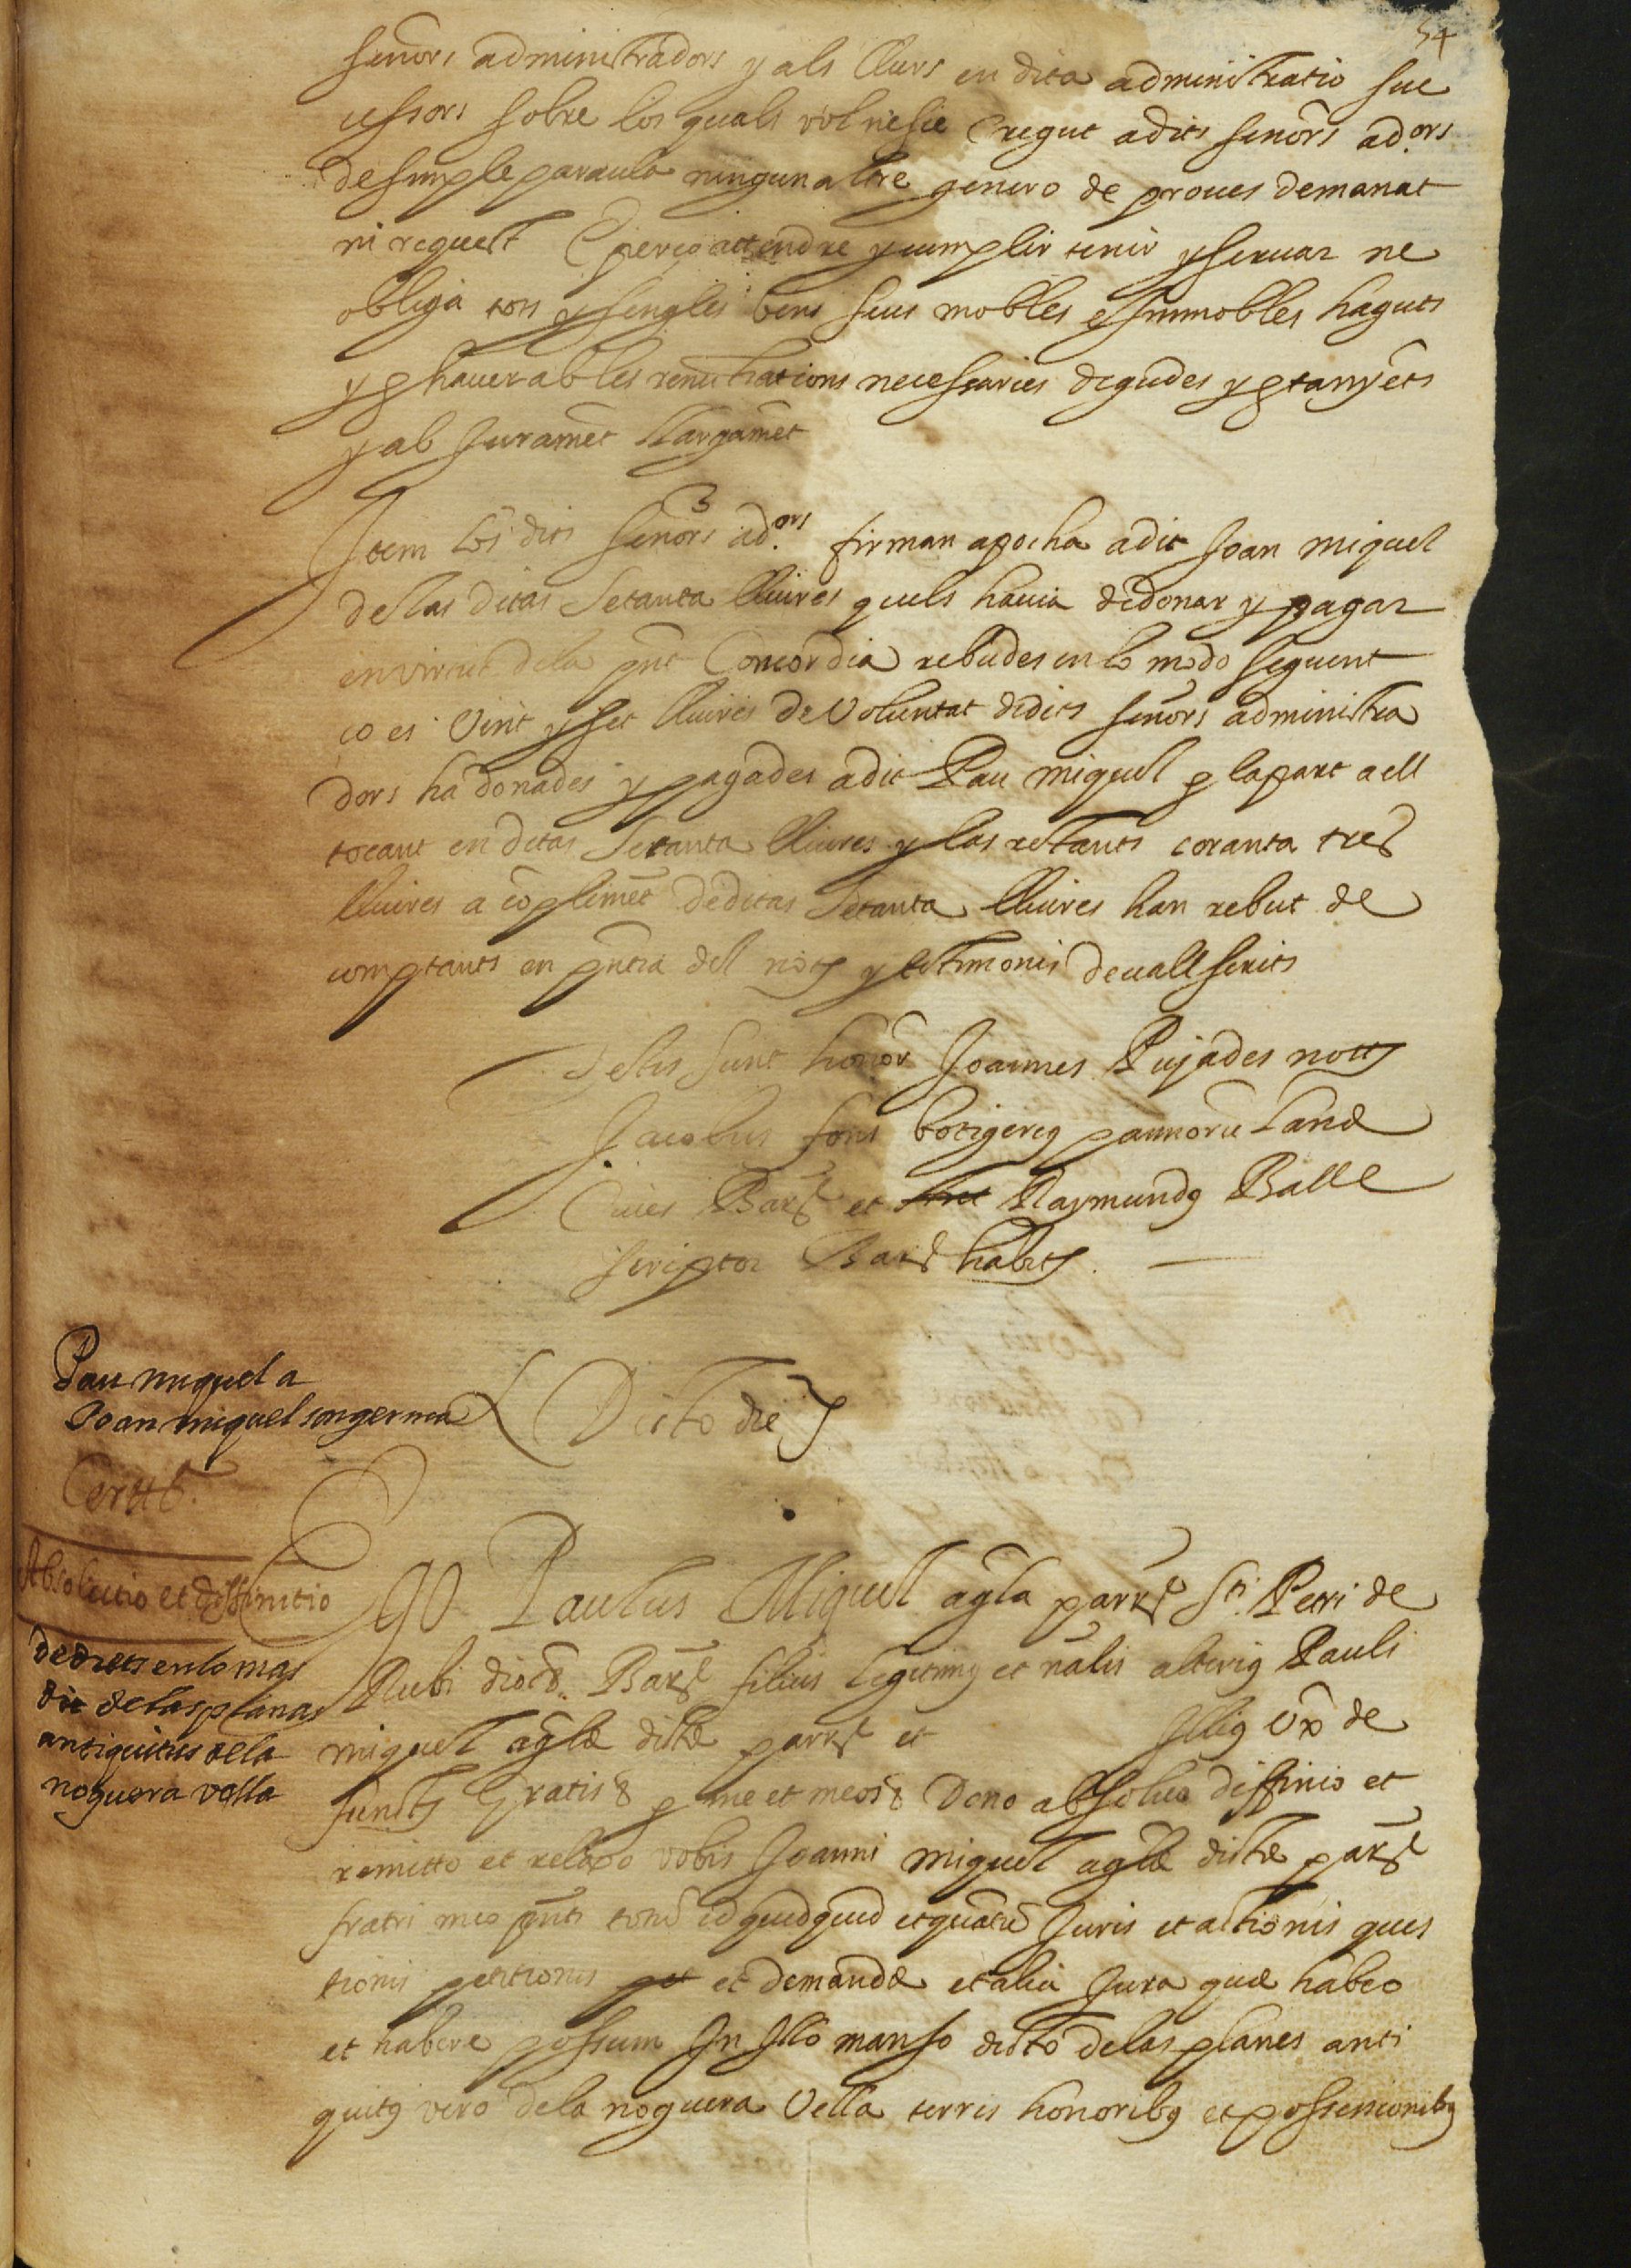 54
señors administradors y als llurs en dita administratio suc
cessors sobre los quals vol ne sie cregut a dits señors ad.ors
de simple paraula ningun altre genero de proues demanat
ni request E perço attendre y cumplir tenir y seruar ne
obliga tots y sengles bens seus mobles e Immobles haguts
y p hauer ab les renuntiations necessaries degudes y ptanyẽts
y ab Juramẽt llargamẽt
Item los dits señors ad.ors firman apocha a dit Joan miquel
de las ditas Setanta lliures quels hauia de donar y pagar
en virtut de la pñt Concordia rebudes en lo modo seguent
ço es Vint y set lliures de Voluntat de dits señors administra
dors ha donades y pagades a dit Pau miquel p la part a ell
tocant en ditas Setanta lliures y las restants coranta tres
lliures a cõplimẽt de ditas Setanta lliures han rebut de
comptants en pñtia del notj y testimonis deuall scrits
Testes sunt honor Joannes Pujades nottj
Jacobus fons botigerig pannorũ lanæ
Ciues Barẽ et Raymundg Balle
scriptor Barẽ habitj.
Pau miquel a
Joan miquel son germa
Dicto die
Absolutio et diffinitio
de drets en lo mas
dit de las planas
antiquitus de la
noguera vella
Ego Paulus Miquel agla parrẽ Sti. Petri de
Rubi diocẽ. Barẽ filius legitimg et nãlis alterig Pauli
miquel aglæ dictæ parrẽ et Illig vx̃ de
functj Gratis & p me et meos & Dono absoluo diffinio et
remitto et relaxo vobis Joanni miquel aglæ dictæ parrẽ
fratri meo pñti totũ id quidquid et quãtũ Juris et actionis ques
tionis petitionis et demandæ et alia Jura quæ habeo
et habere possum In Illo manso dicto de las planes anti
quitg vero de la noguera Vella terris honoribg et possessionibg